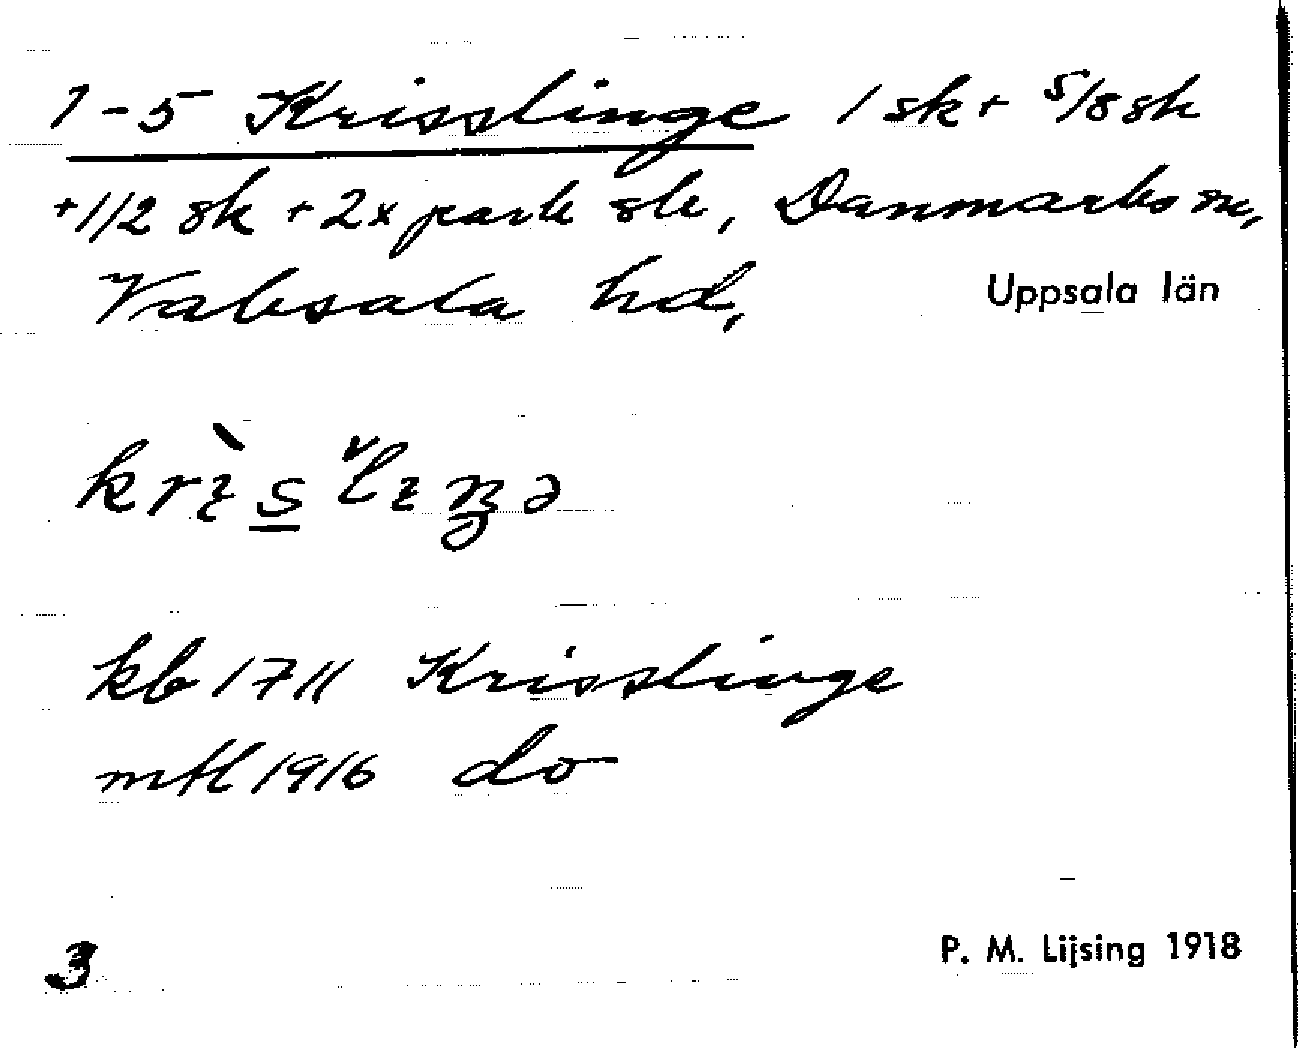 1-5 Krisslinge 1 sk + 5/8 sk
+ 1/2 sk + 2 x park sk, Danmarks sn,
Vaksala hd, Uppsala län
krìsˇlıŋə
kb 1711 Krisslinge
mtl 1916 do
3 P. M. Lijsing 1918